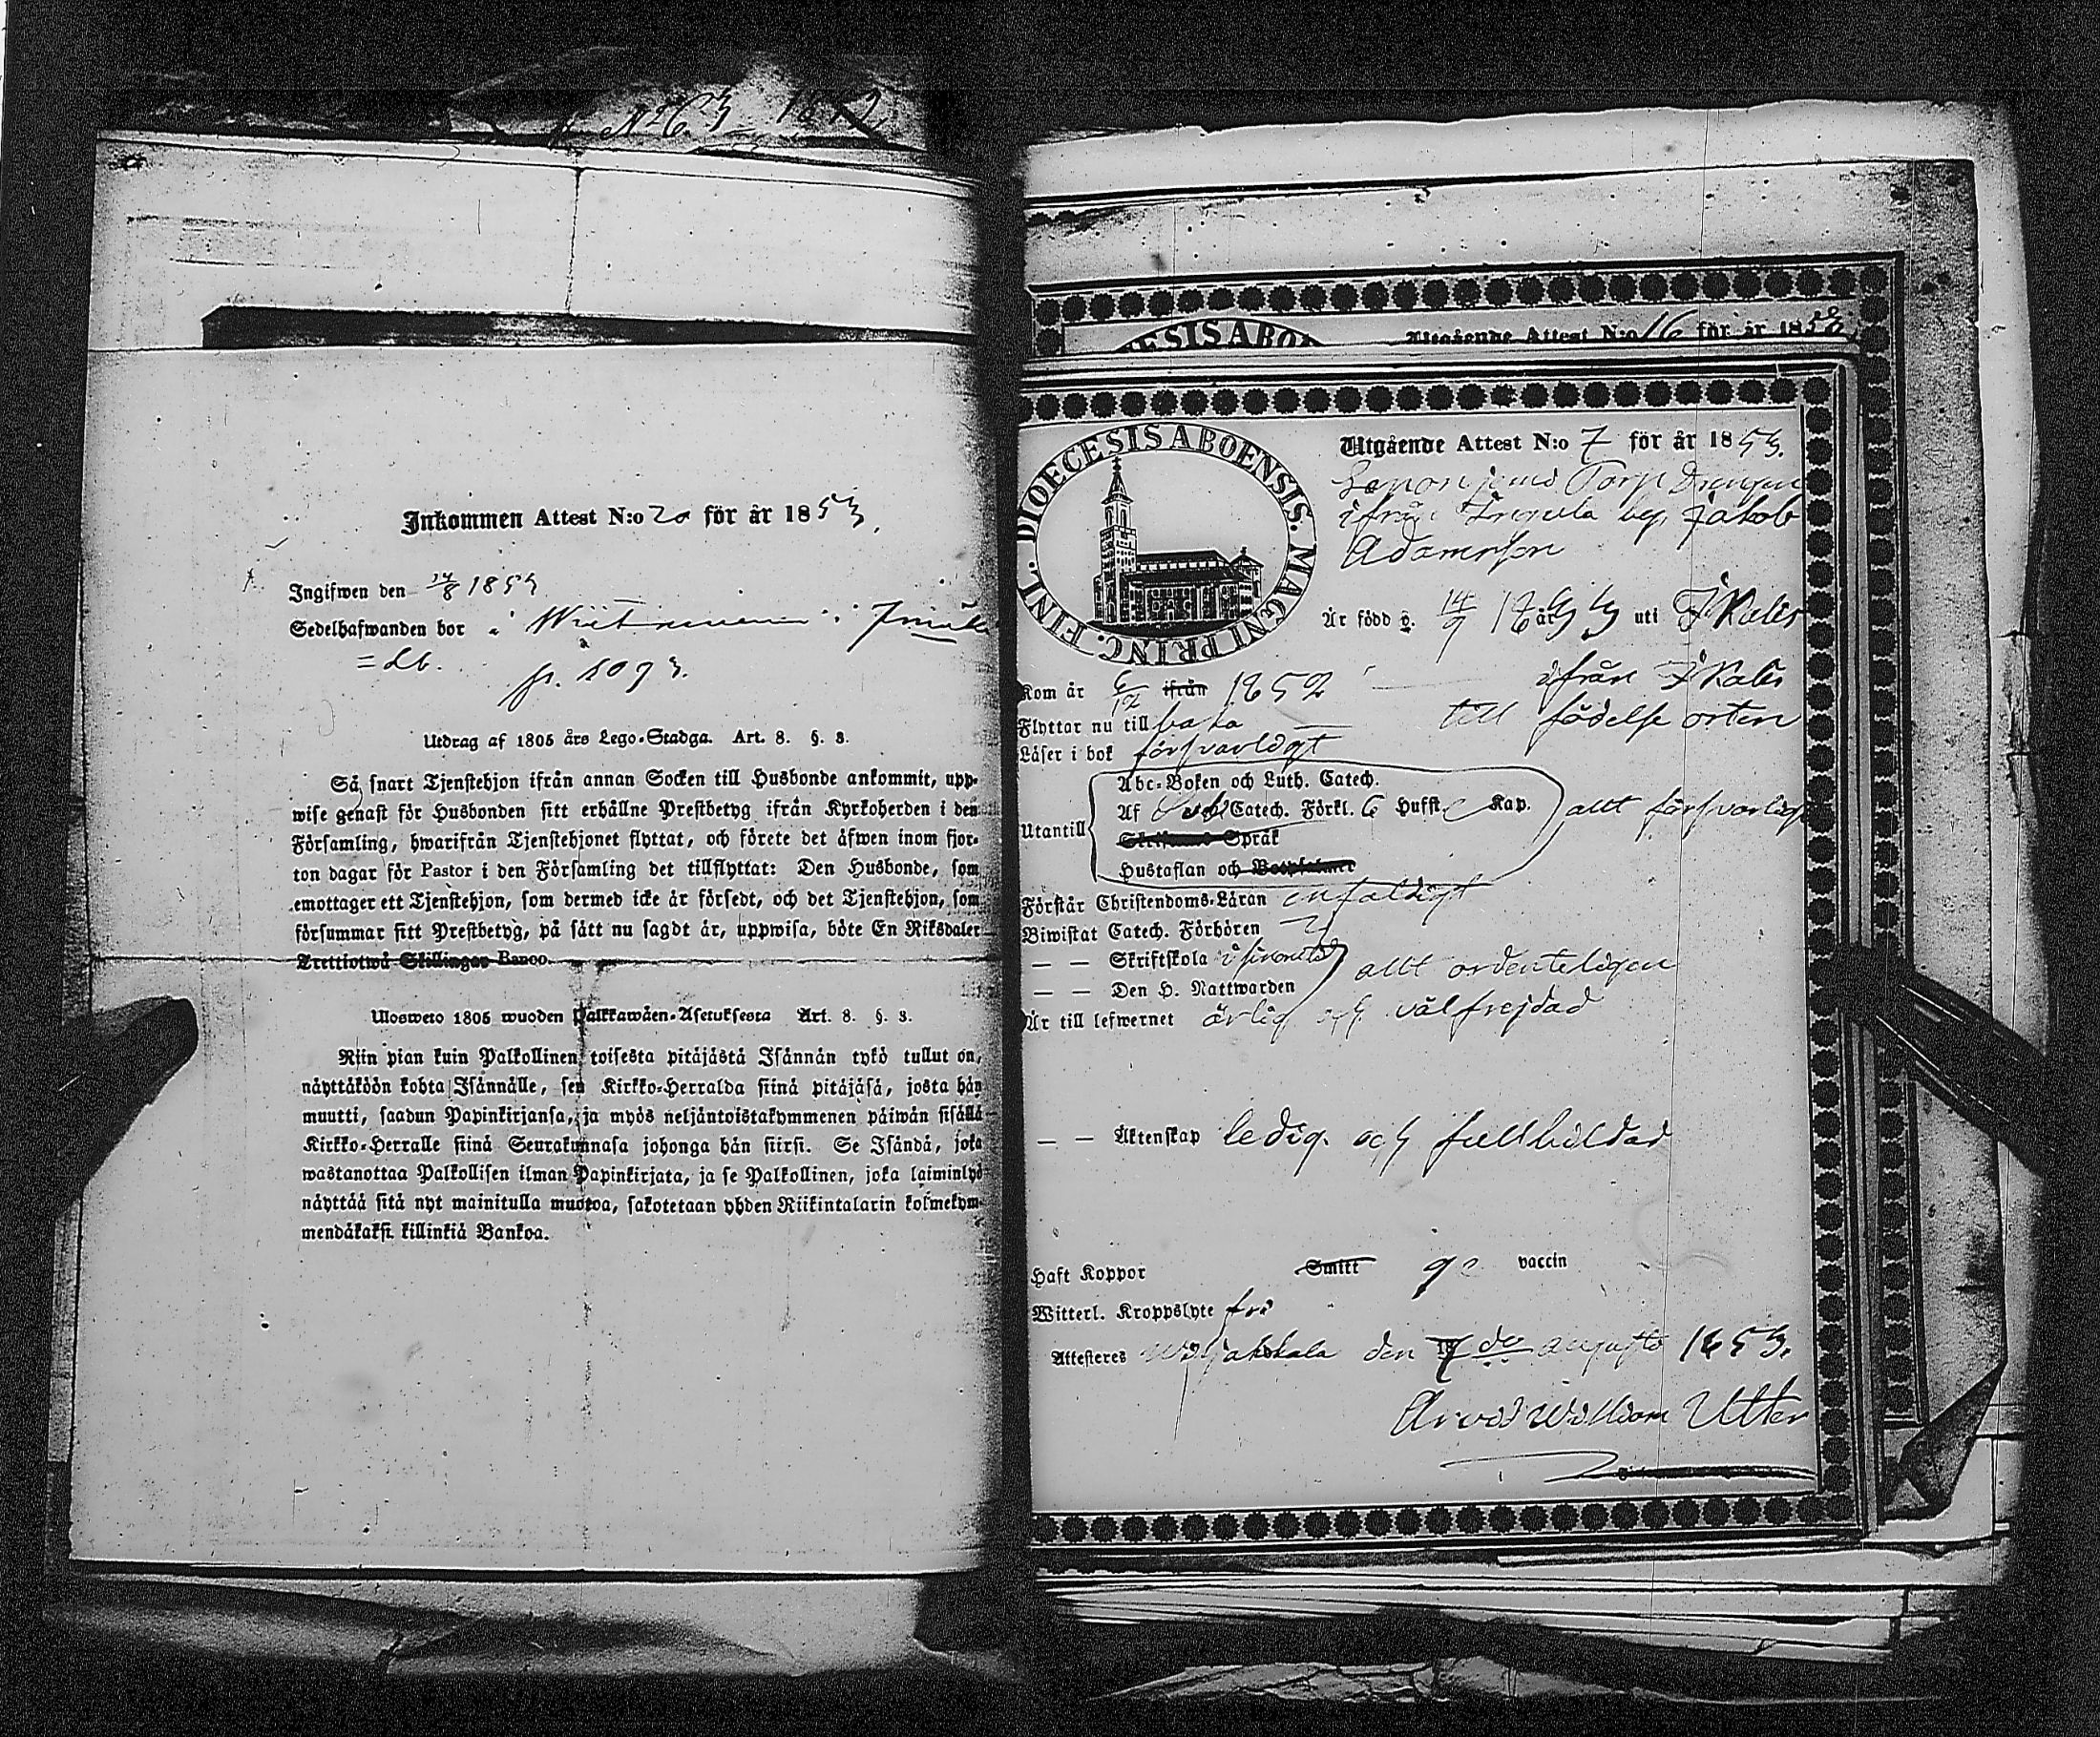 N:o 63 1852
Inkommen Attest N:o 20 för år 1853.
Ingifwen den 14/8 1853
Sedelhafwanden bor i
= db.
p. 1093.
Utdrag af 1805 års Lego-Stadga. Art. 8. §. 3.
Så snart Tjenstehjon ifrån annan Socken till Husbonde ankommit, upp-
wise genast för Husbonden sitt erhållne Prestbetyg ifrån Kyrkoherden i den
Församling, hwarifrån Tjenstehjonet flyttat, och förete det äfwen inom fjor-
ton dagar för Pastor i den Församling det tillflyttat: Den Husbonde, som
emottager ett Tjenstehjon, som dermed icke är försedt, och det Tjenstehjon, som
försummar sitt Prestbetyg, på sätt nu sagdt är, uppwisa, böte En Riksdaler
Trettiotwå Skillingar Banco.
Ulosweto 1805 wuoden Palkkawäen-Asetuksesta Art. 8. §. 3.
Niin pian kuin Palkollinen toisesta pitäjästä Isännän tykö tullut on,
näyttäköön kohta Isännälle, sen Kirkko-Herralda siinä pitäjäsä, josta hän
muutti, saadun Papinkirjansa, ja myös neljäntoistakymmenen päiwän sisällä
Kirkko-Herralle siinä Seurakunnasa johonga hän siirsi. Se Isändä, joka
wastanottaa Palkollisen ilman Papinkirjata, ja se Palkollinen, joka laiminlyö
näyttää sitä nyt mainitulla muotoa, sakotetaan yhden Riikintalarin kolmekym-
mendäkaksi killinkiä Bankoa.
ESIS ABO
Utgående Attest N:o 16 för år 1852
DIOECESIS ABOENSIS. MAGNI PRINC. FINL.
Utgående Attest N:o 7 för år 1853.
Torp Drengen
ifrån by, Jakob
Adamsson
Är född d. 14/9 18 33 uti Ikalis
Kom år 6/12 ifrån 1852 ifrån Ikalis
Flyttar nu till baka till födelse orten
Läser i bok försvarligt
Abc-Boken och Luth. Catech.
Utantill Af Catech. Förkl. 6 Hufst Kap. allt försvarligt
Språk
Hustaflan och
Förstår Christendoms-Läran enfaldigt
Biwistat Catech. Förhören
— — Skriftskola
— — Den H. Nattwarden allt ordenteligen
Är till lefwernet ärlig och välfrejdad
— — Äktenskap ledig. och fullbildad
Haft Koppor Smitt vaccin
Witterl. Kroppslyte fri
Attesteres Wiljakkala den 7 de augusti 1853.
Arvid William Utter